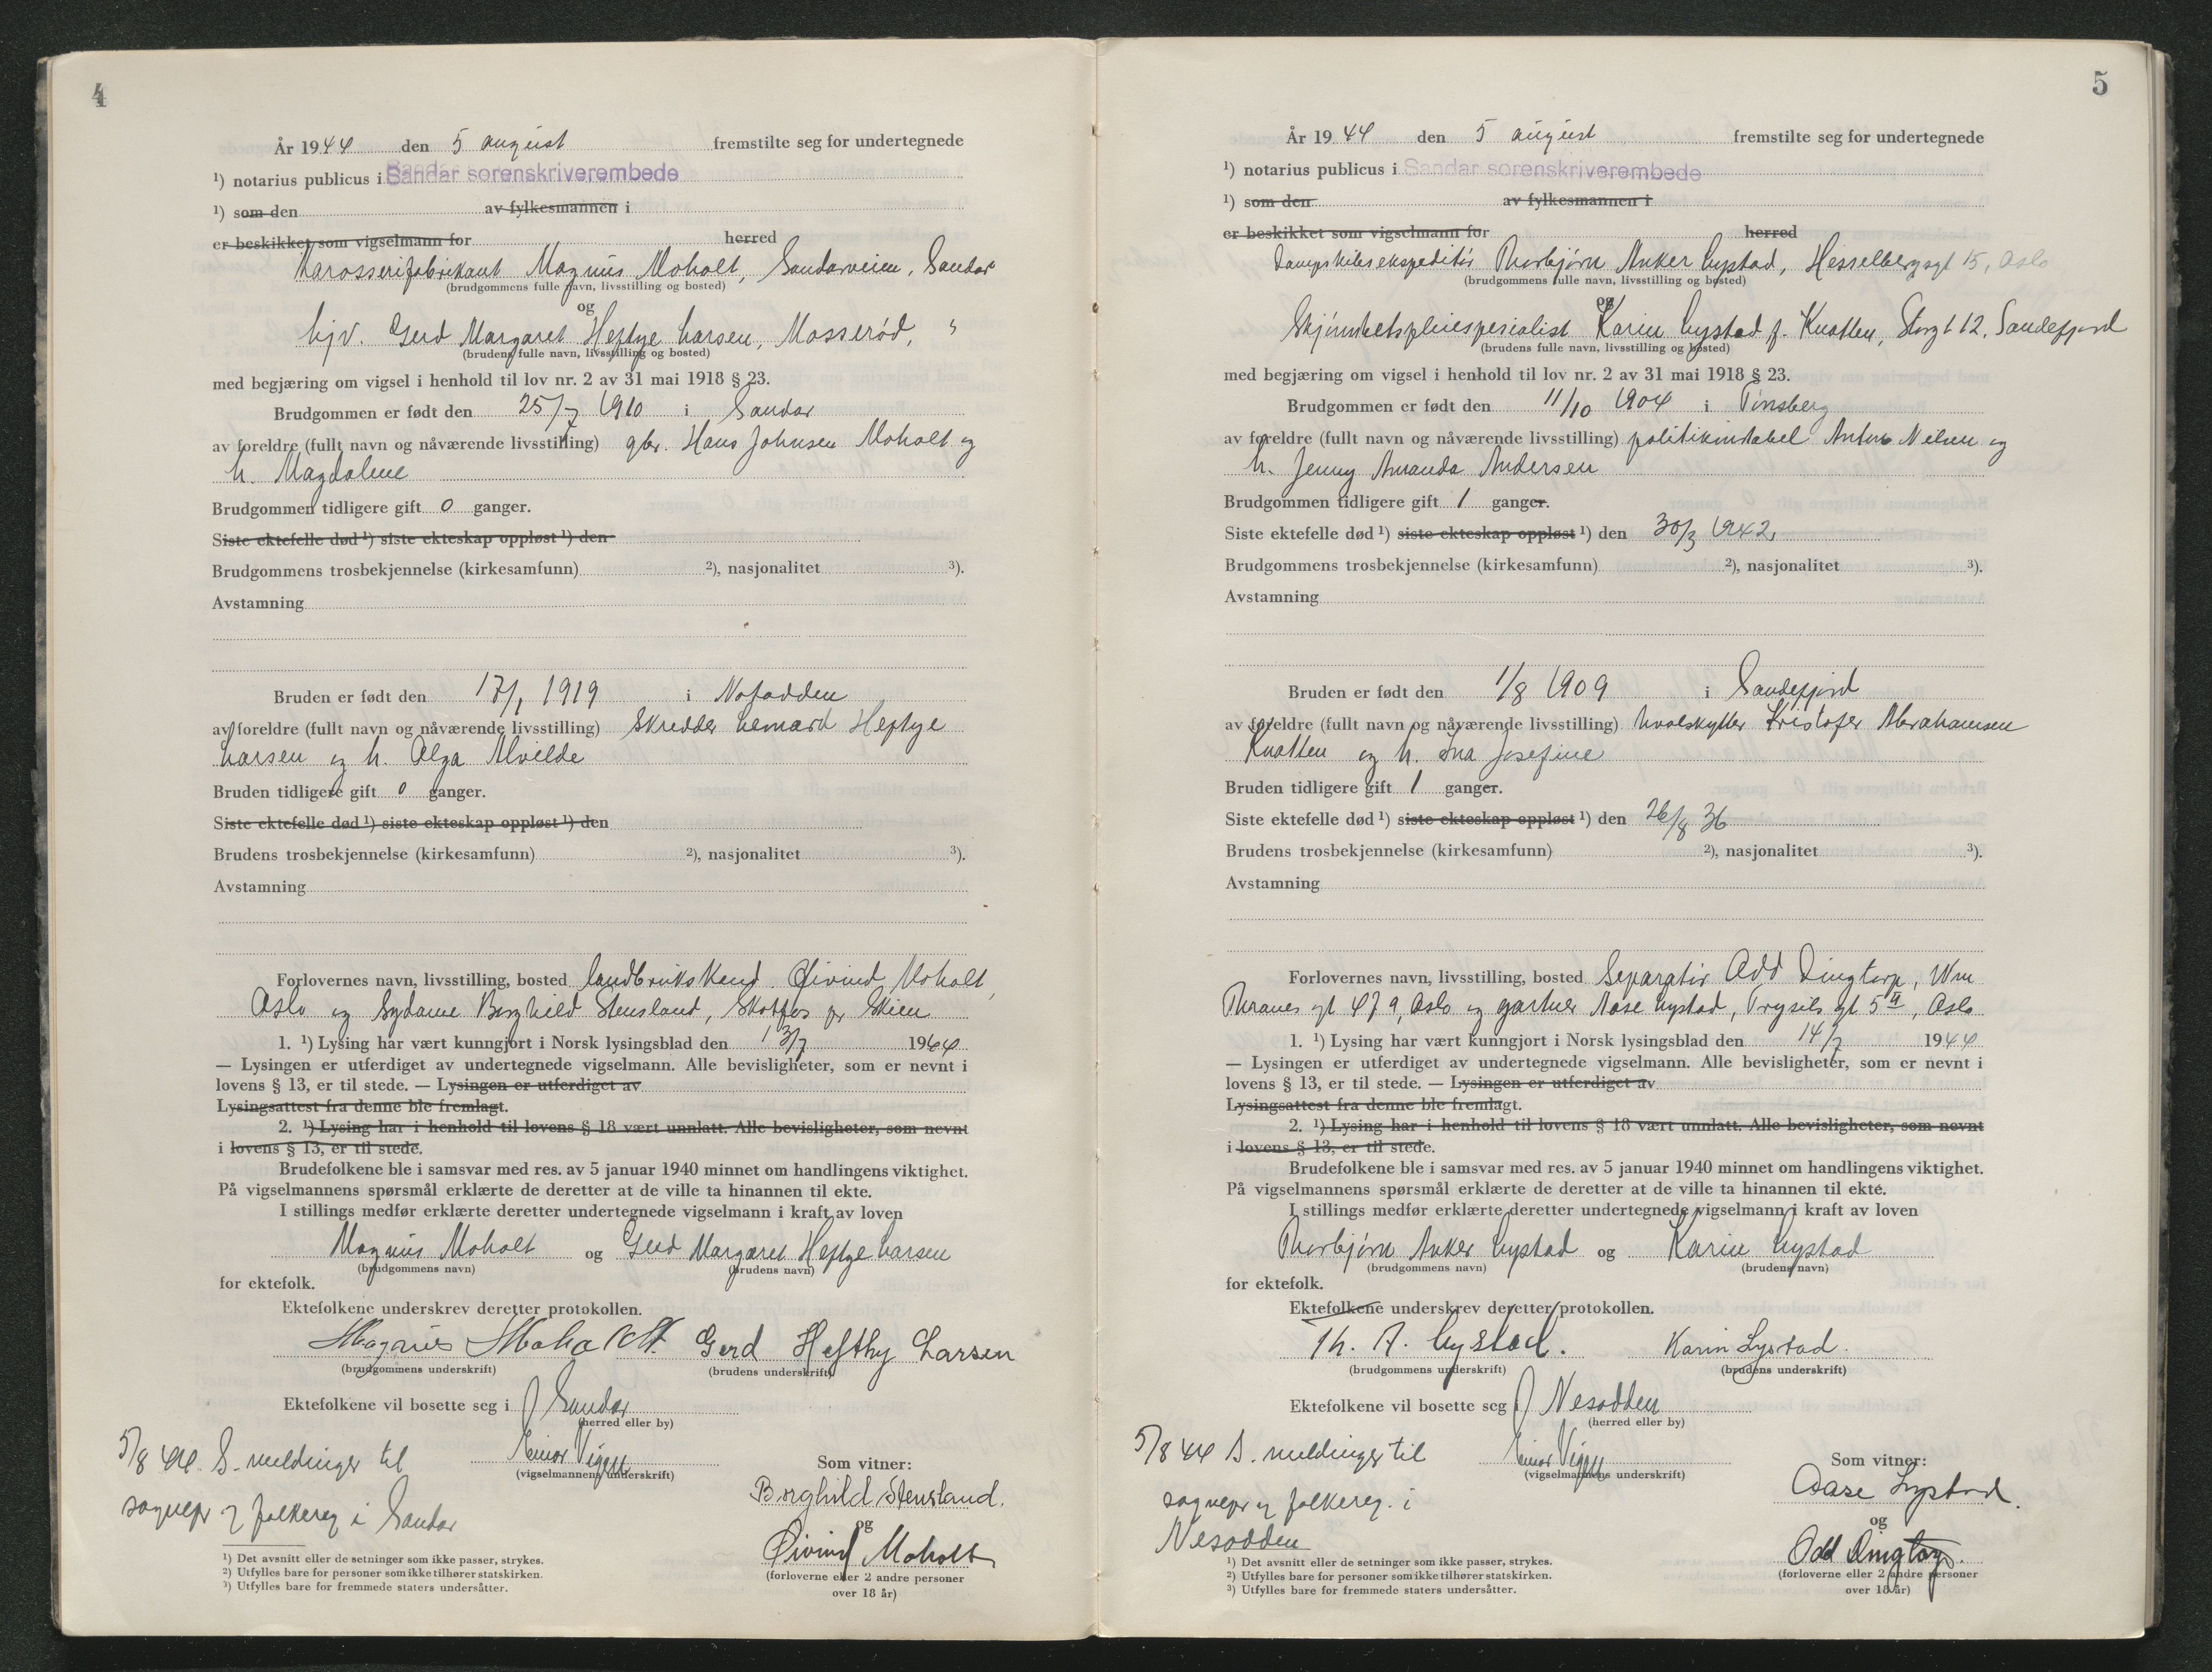 4
År 1944 den 5 august fremstilte seg for undertegnede
¹) notarius publicus i Sandar sorenskriverembede
¹) som den av fylkesmannen i
er beskikket som vigselmann for herred
Karosserifabrikant Magnus Moholt, Sandarveien, Sandar
(brudgommens fulle navn, livsstilling og bosted)
og
hjv. Gerd Margaret Heftye Larsen, Mosserød, "
(brudens fulle navn, livsstilling og bosted)
med begjæring om vigsel i henhold til lov nr. 2 av 31 mai 1918 § 23.
Brudgommen er født den 25/7 1910 i Sandar
av foreldre (fullt navn og nåværende livsstilling) gbr. Hans Johnsen Moholt og
h. Magdalene
Brudgommen tidligere gift 0 ganger.
Siste ektefelle død ¹) siste ekteskap oppløst ¹) den
Brudgommens trosbekjennelse (kirkesamfunn) ²), nasjonalitet ³).
Avstamning
Bruden er født den 17/1 1919 i Notodden
av foreldre (fullt navn og nåværende livsstilling) skredder Lenard Heftye
Larsen og h. Olga Alvilde
Bruden tidligere gift 0 ganger.
Siste ektefelle død ¹) siste ekteskap oppløst ¹) den
Brudens trosbekjennelse (kirkesamfunn) ²), nasjonalitet ³).
Avstamning
Forlovernes navn, livsstilling, bosted landbrukskand. Øivind Moholt,
Oslo og sydame Borghild Stensland, Skotfos pr Skien
1. ¹) Lysing har vært kunngjort i Norsk lysingsblad den 13/7 1944
— Lysingen er utferdiget av undertegnede vigselmann. Alle bevisligheter, som er nevnt i
lovens § 13, er til stede. — Lysingen er utferdiget av
Lysingsattest fra denne ble fremlagt.
2. ¹) Lysing har i henhold til lovens § 18 vært unnlatt. Alle bevisligheter, som nevnt
i lovens § 13, er til stede.
Brudefolkene ble i samsvar med res. av 5 januar 1940 minnet om handlingens viktighet.
På vigselmannens spørsmål erklærte de deretter at de ville ta hinannen til ekte.
I stillings medfør erklærte deretter undertegnede vigselmann i kraft av loven
Magnus Moholt og Gerd Margaret Heftye Larsen
(brudgommens navn) (brudens navn)
for ektefolk.
Ektefolkene underskrev deretter protokollen.
Magnus Moholt Gerd Hefthy Larsen
(brudgommens underskrift) (brudens underskrift)
Ektefolkene vil bosette seg i Sandar
(herred eller by)
5/8 44. S. meldinger til
Einar Viggen
(vigselmannens underskrift)
Som vitner:
Borghild Stensland.
sognepr og folkereg i Sandar
og
Øivind Moholt
(forloverne eller 2 andre personer
over 18 år)
¹) Det avsnitt eller de setninger som ikke passer, strykes.
²) Utfylles bare for personer som ikke tilhører statskirken.
³) Utfylles bare for fremmede staters undersåtter.
5
År 1944 den 5 august fremstilte seg for undertegnede
¹) notarius publicus i Sandar sorenskriverembede
¹) som den av fylkesmannen i
er beskikket som vigselmann for herred
Dampskibsekspeditør Thorbjørn Anker Lystad, Hesselbergsgt 15, Oslo
(brudgommens fulle navn, livsstilling og bosted)
og
Skjønnhetspleiespesialist Karin Lystad f. Knatten, Storgt 12, Sandefjord
(brudens fulle navn, livsstilling og bosted)
med begjæring om vigsel i henhold til lov nr. 2 av 31 mai 1918 § 23.
Brudgommen er født den 11/10 1904 i Tønsberg
av foreldre (fullt navn og nåværende livsstilling) politikonstabel Anton Nilsen og
h. Jenny Amanda Andersen
Brudgommen tidligere gift 1 ganger.
Siste ektefelle død ¹) siste ekteskap oppløst ¹) den 30/3 1942.
Brudgommens trosbekjennelse (kirkesamfunn) ²), nasjonalitet ³).
Avstamning
Bruden er født den 1/8 1909 i Sandefjord
av foreldre (fullt navn og nåværende livsstilling) hvalskytter Kristofer Abrahamsen
Knatten og h. Ina Josefine
Bruden tidligere gift 1 ganger.
Siste ektefelle død ¹) siste ekteskap oppløst ¹) den 26/8 36
Brudens trosbekjennelse (kirkesamfunn) ²), nasjonalitet ³).
Avstamning
Forlovernes navn, livsstilling, bosted Separatør Odd Dingtorp, Wm
Thranes gt 47 a, Oslo og gartner Aase Lystad, Trysils gt 5 II, Oslo
1. ¹) Lysing har vært kunngjort i Norsk lysingsblad den 14/7 1944
— Lysingen er utferdiget av undertegnede vigselmann. Alle bevisligheter, som er nevnt i
lovens § 13, er til stede. — Lysingen er utferdiget av
Lysingsattest fra denne ble fremlagt.
2. ¹) Lysing har i henhold til lovens § 18 vært unnlatt. Alle bevisligheter, som nevnt
i lovens § 13, er til stede.
Brudefolkene ble i samsvar med res. av 5 januar 1940 minnet om handlingens viktighet.
På vigselmannens spørsmål erklærte de deretter at de ville ta hinannen til ekte.
I stillings medfør erklærte deretter undertegnede vigselmann i kraft av loven
Thorbjørn Anker Lystad og Karin Lystad
(brudgommens navn) (brudens navn)
for ektefolk.
Ektefolkene underskrev deretter protokollen.
Th. A. Lystad. Karin Lystad.
(brudgommens underskrift) (brudens underskrift)
Ektefolkene vil bosette seg i Nesodden
(herred eller by)
5/8 44 S. meldinger til
Einar Viggen
(vigselmannens underskrift)
Som vitner:
Aase Lystad.
sognepr og folkereg. i
Nesodden
og
Odd Dingtorp.
(forloverne eller 2 andre personer
over 18 år)
¹) Det avsnitt eller de setninger som ikke passer, strykes.
²) Utfylles bare for personer som ikke tilhører statskirken.
³) Utfylles bare for fremmede staters undersåtter.